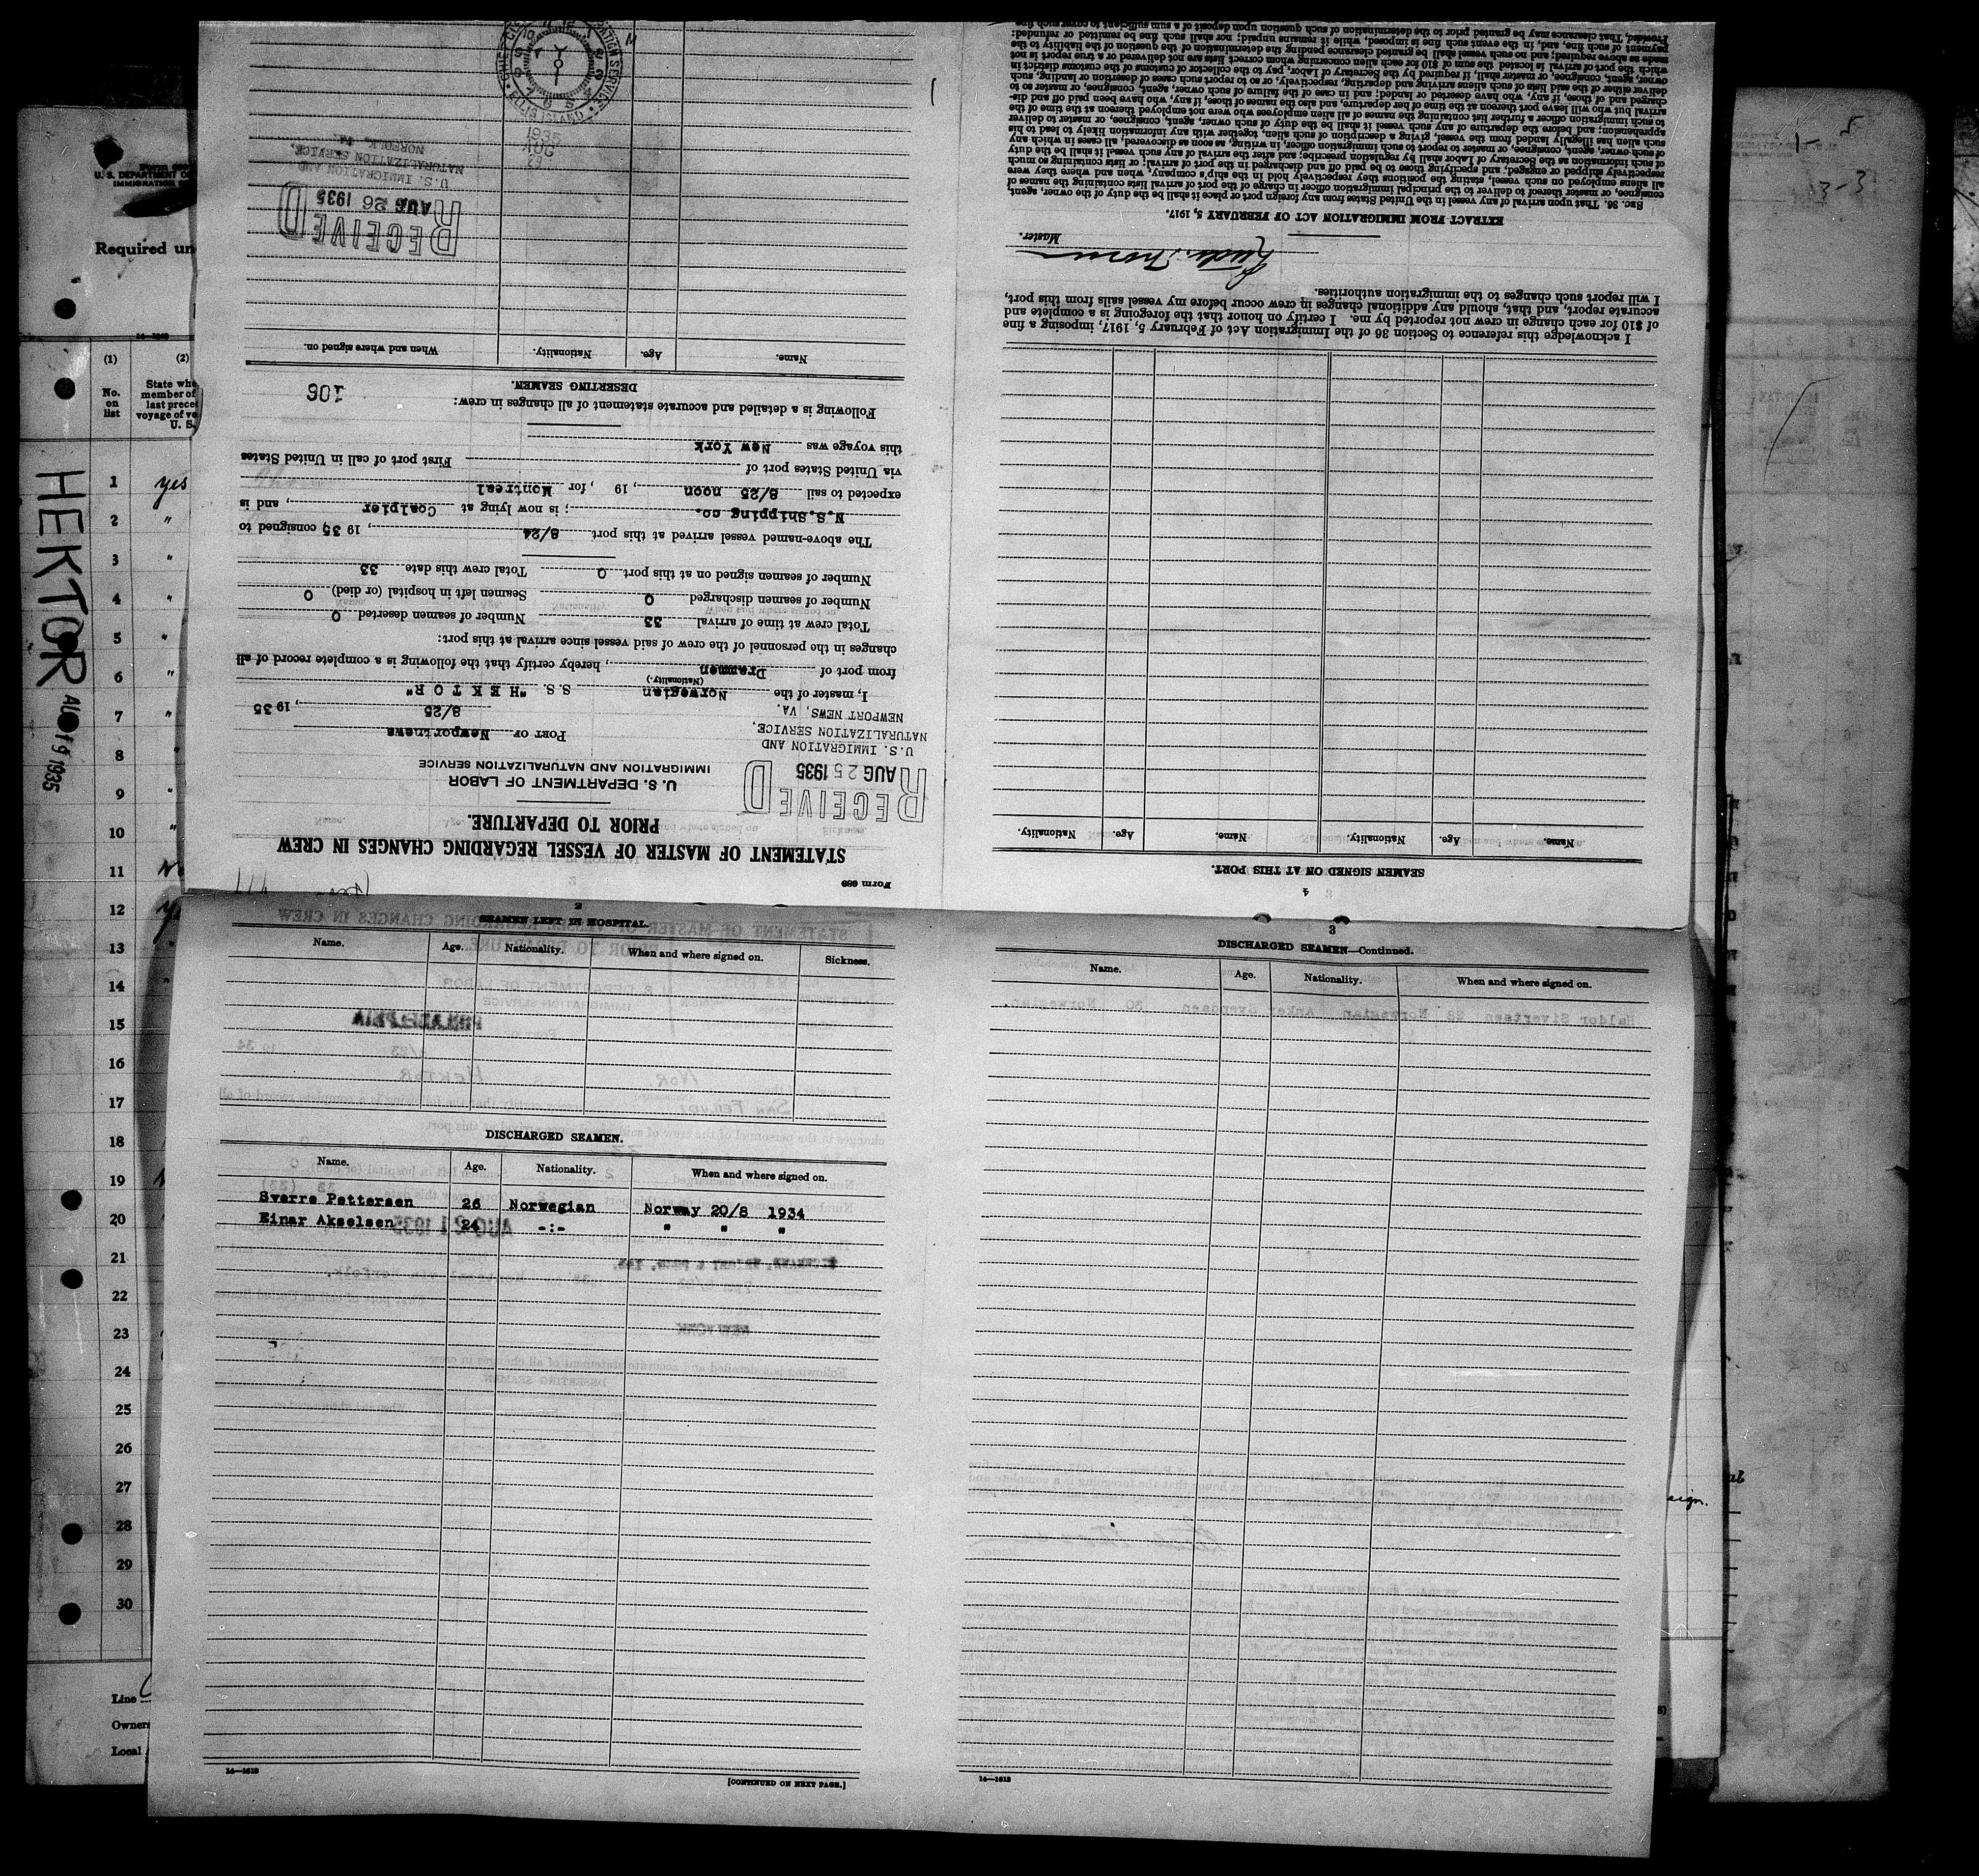 Form 689
STATEMENT OF MASTER OF VESSEL REGARDING CHANGES IN CREW
PRIOR TO DEPARTURE.
U. S. DEPARTMENT OF LABOR
IMMIGRATION AND NATURALIZATION SERVICE
RECEIVED
AUG 25 1935
U. S. IMMIGRATION AND
NATURALIZATION SERVICE,
NEWPORT NEWS, VA.
PORT OF Newportnews
8/25, 1935
I, master of the Norwegian S.S. "HEKTOR"
(Nationality.)
from port of Drammen, hereby certify that the following is a complete record of all
changes in the personnel of the crew of said vessel since arrival at this port:
Total crew at time of arrival 33 Number of seamen deserted 0
Number of seamen discharged 0 Seamen left in hospital (or died) 0
Number of seamen signed on at this port 0 Total crew this date 33
The above-named vessel arrived at this port 8/24, 1935 consigned to
N.S.Shipping co. ; is now lying at Coalpier, and is
expected to sail 8/25 noon, 19 , for Montreal
via United States port of First port of call in United States
this voyage was New York
Following is a detailed and accurate statement of all changes in crew:
106
DESERTING SEAMEN.
Name. Age. Nationality. When and where signed on.
RECEIVED
AUG 26 1935
U. S. IMMIGRATION AND
NATURALIZATION SERVICE,
NORFOLK, VA.
1935
AUG
ELLIS ISLAND
4
SEAMEN SIGNED ON AT THIS PORT.
Name. Age. Nationality. Name. Age. Nationality.
I acknowledge this reference to Section 36 of the Immigration Act of February 5, 1917, imposing a fine
of $10 for each change in crew not reported by me. I certify on honor that the foregoing is a complete and
accurate report, and that, should any additional changes in crew occur before my vessel sails from this port,
I will report such changes to the immigration authorities.
Master.
EXTRACT FROM IMMIGRATION ACT OF FEBRUARY 5, 1917.
SEC. 36. That upon arrival of any vessel in the United States from any foreign port or place it shall be the duty of the owner, agent,
consignee, or master thereof to deliver to the principal immigration officer in charge of the port of arrival lists containing the names of
all aliens employed on such vessel, stating the positions they respectively hold in the ship's company, when and where they were
respectively shipped or engaged, and specifying those to be paid off and discharged in the port of arrival; or lists containing so much
of such information as the Secretary of Labor shall by regulation prescribe; and after the arrival of any such vessel it shall be the duty
of such owner, agent, consignee, or master to report to such immigration officer, in writing, as soon as discovered, all cases in which any
such alien has illegally landed from the vessel, giving a description of such alien, together with any information likely to lead to his
apprehension; and before the departure of any such vessel it shall be the duty of such owner, agent, consignee, or master to deliver
to such immigration officer a further list containing the names of all alien employees who were not employed thereon at the time of the
arrival but who will leave port thereon at the time of her departure, and also the names of those, if any, who have been paid off and dis-
charged and of those, if any, who have deserted or landed; and in case of the failure of such owner, agent, consignee, or master so to
deliver either of the said lists of such aliens arriving and departing, respectively, or so to report such cases of desertion or landing, such
owner, agent, consignee, or master, shall, if required by the Secretary of Labor, pay to the collector of customs of the customs district in
which the port of arrival is located the sum of $10 for each alien concerning whom correct lists are not delivered or a true report is not
made as above required; and no such vessel shall be granted clearance pending the determination of the question of the liability to the
payment of such fine, and, in the event such fine is imposed, while it remains unpaid; nor shall such fine be remitted or refunded:
Provided, That clearance may be granted prior to the determination of such question upon deposit of a sum sufficient to cover such fine
2
SEAMEN LEFT IN HOSPITAL
Name. Age. Nationality. When and where signed on. Sickness.
DISCHARGED SEAMEN.
Name. Age. Nationality. When and where signed on.
Sverre Pettersen 26 Norwegian Norway 20/8 1934
Einar Akselsen 24 -:- " " "
14—1613
[CONTINUED ON NEXT PAGE.]
3
DISCHARGED SEAMEN—Continued.
Name. Age. Nationality. When and where signed on.
14—1613
U. S. DEPARTMENT OF
IMMIGRATION
Required un
(1) (2)
No. on list
State whe
member of
last prece
voyage of ve
U. S.
HEKTOR
AUG 19 1935
1 yes
2 "
3 "
4 "
5 "
6 "
7 "
8 "
9 "
10 "
11 No
12
13
14
15
16
17
18
19
20
21
22
23
24
25
26
27
28
29
30
Line
Owners
Local
3-3